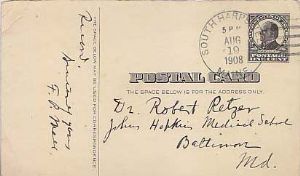 SOUTH HARPS
5 PM
AUG
19
1908
POSTAGE
ONE CENT
POSTAL CARD
THE SPACE BELOW IS FOR THE ADDRESS ONLY.
Dr. Robert Retzer
Johns Hopkins Medical School
Baltimore
Md.
THE SPACE BELOW MAY BE USED FOR CORRESPONDENCE
Sincerely yours
F. P. Mall.